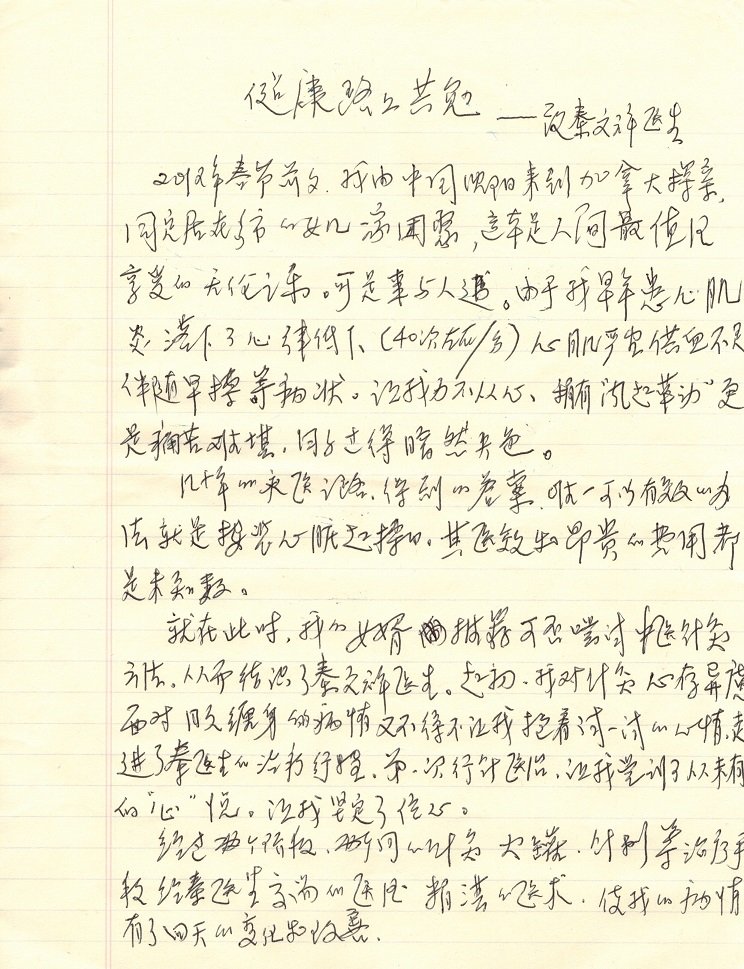 健康路上共勉
——致秦文祥医生
2018年春节前夕，我由中国沈阳来到加拿大探亲，
同定居在多市的女儿家团聚，这本是人间最值得
享受的天伦之乐。可是事与人违。由于我早年患心肌
炎落下了心律低下（40次左右/分）心肌严重供血不足
伴随早搏等病状。让我力不从心、拥有"说起革动"更
是痛苦难堪，日子过得暗然失色。
几十年的求医之路，得到的答案，唯一可以有效的办
法就是按装心脏起搏器，其医效和昂贵的费用都
是未知数。
就在此时，我的女婿推荐可否尝试中医针灸
方法，从而结识了秦文祥医生。起初，我对针灸心存异虑
面对久缠身的病情又不得不让我抱着试一试的心情走
进了秦医生的治疗行程，第一次行针医治，让我尝到了从未有
的"心"悦。让我坚定了信心。
经过两个阶段，两个月的针灸火罐，针刺等治疗手
段给秦医生高尚的医德精湛的医术，使我的病情
有了回天的变化和改善.